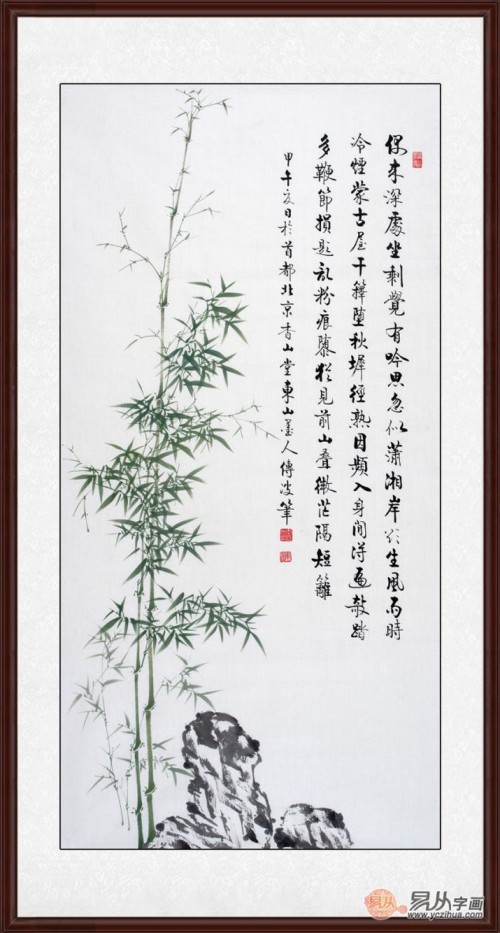 偶来深處坐剩覺有吟思忽似瀟湘岸欲生風雨時
冷煙蒙古屋干籜墮秋墀徑熟因頻入身閒得遍敧踏
多鞭節損題乱粉痕隳犹見前山叠微茫隔短籬
甲午夏日於首都北京香山堂東山墨人傅波筆
易从
易从字画
www.yczihua.com